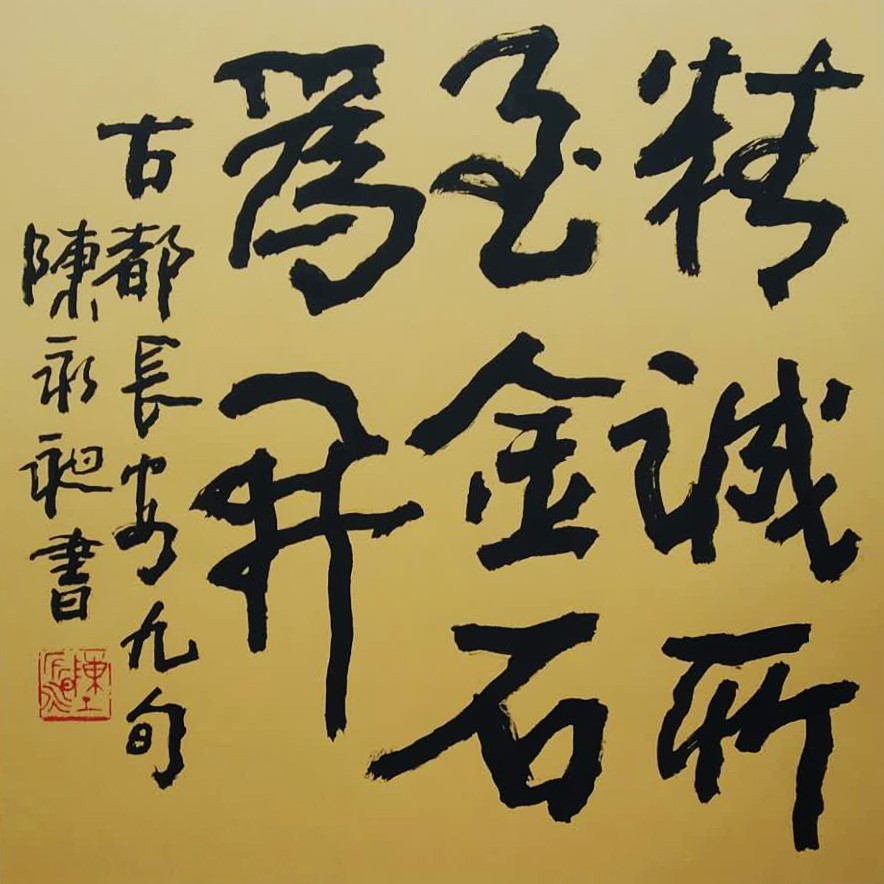 精誠所
至金石
為開
古都長安九旬
陳永昶書